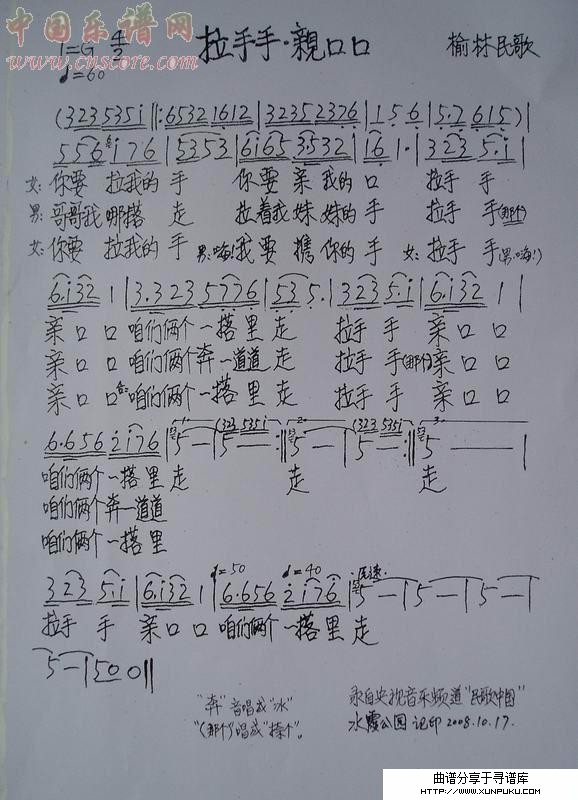 中国乐谱网
www.cnscore.com
1=G 4/2
♩=60
拉手手·親口口
榆林民歌
(323 535i |: 65321612 | 32352376 | 1 5 6 | 5.7 615) |
556 i76 | 5353 | 6i65 3532 | 16 1· | 323 5.i |
女: 你要 拉我的 手 你要 亲我的 口 拉手 手
男: 哥哥我 哪搭 走 拉着我 妹妹的 手 拉手 手(那个)
女: 你要 拉我的 手 男:(嗨!)我要 携你的 手 女: 拉手 手(男:嗨!)
6.i32 1 | 3.323 5776 | 53 5. | 323 5.i | 6.i32 1 |
亲口 口 咱们俩个 一搭里 走 拉手 手 亲口 口
亲口 口 咱们俩个奔 一道道 走 拉手 手(那个)亲口 口
亲口 口 合:咱们俩个 一搭里 走 拉手 手 亲口 口
6.656 2i76 | 5 — | 5 — :| 5 — | 5 — :| 5 — |
(323 535i (323 535i
咱们俩个 一搭里 走 走 走
咱们俩个奔一道道
咱们俩个 一搭里
♩=50 ♩=40 原速
323 5.i | 6.i32 1 | 6.656 2i76 | 5 — | 5 — | 5 — |
拉手 手 亲口 口 咱们俩个 一搭里 走
5 — | 50 0 ||
"奔"音唱成"水"
"(那个)"唱成"捺个"。
录自央视音乐频道"民歌中国"
水霞公园 记印 2008.10.17.
曲谱分享于寻谱库
HTTP://WWW.XUNPUKU.COM